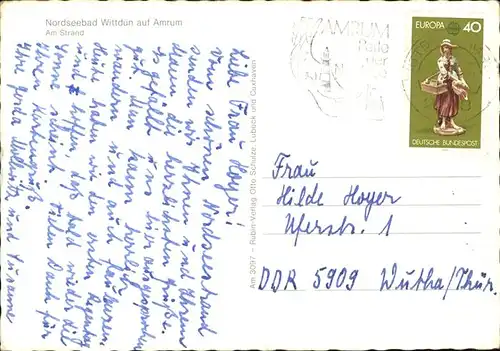 Nordseebad Wittdün auf Amrum
Am Strand
Liebe Frau Hoyer!
Vom schönen Nordseestrand
senden wir Ihnen und Ihrem
Mann die herzlichsten Grüße.
Es gefällt uns hier ausgezeichnet
gut. Man kann herrlich
wandern und auch faulenzen.
Heute haben wir den ersten Regentag
und hoffen, daß bald wieder die
Sonne scheint. Vielen Dank für
Ihren Kartengruß.
Ihre
und
Am 3097 – Rubin-Verlag Otto Schulze, Lübeck und Cuxhaven
AMRUM
EUROPA 40
DEUTSCHE BUNDESPOST
Frau
Hilde Hoyer
Uferstr. 1
DDR 5909 Wutha/Thür.